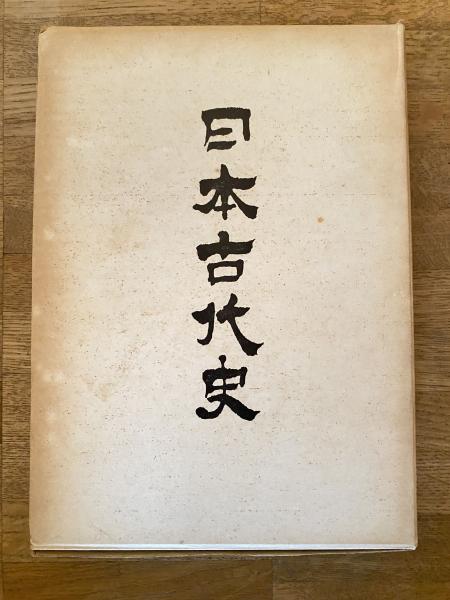 日本古代史